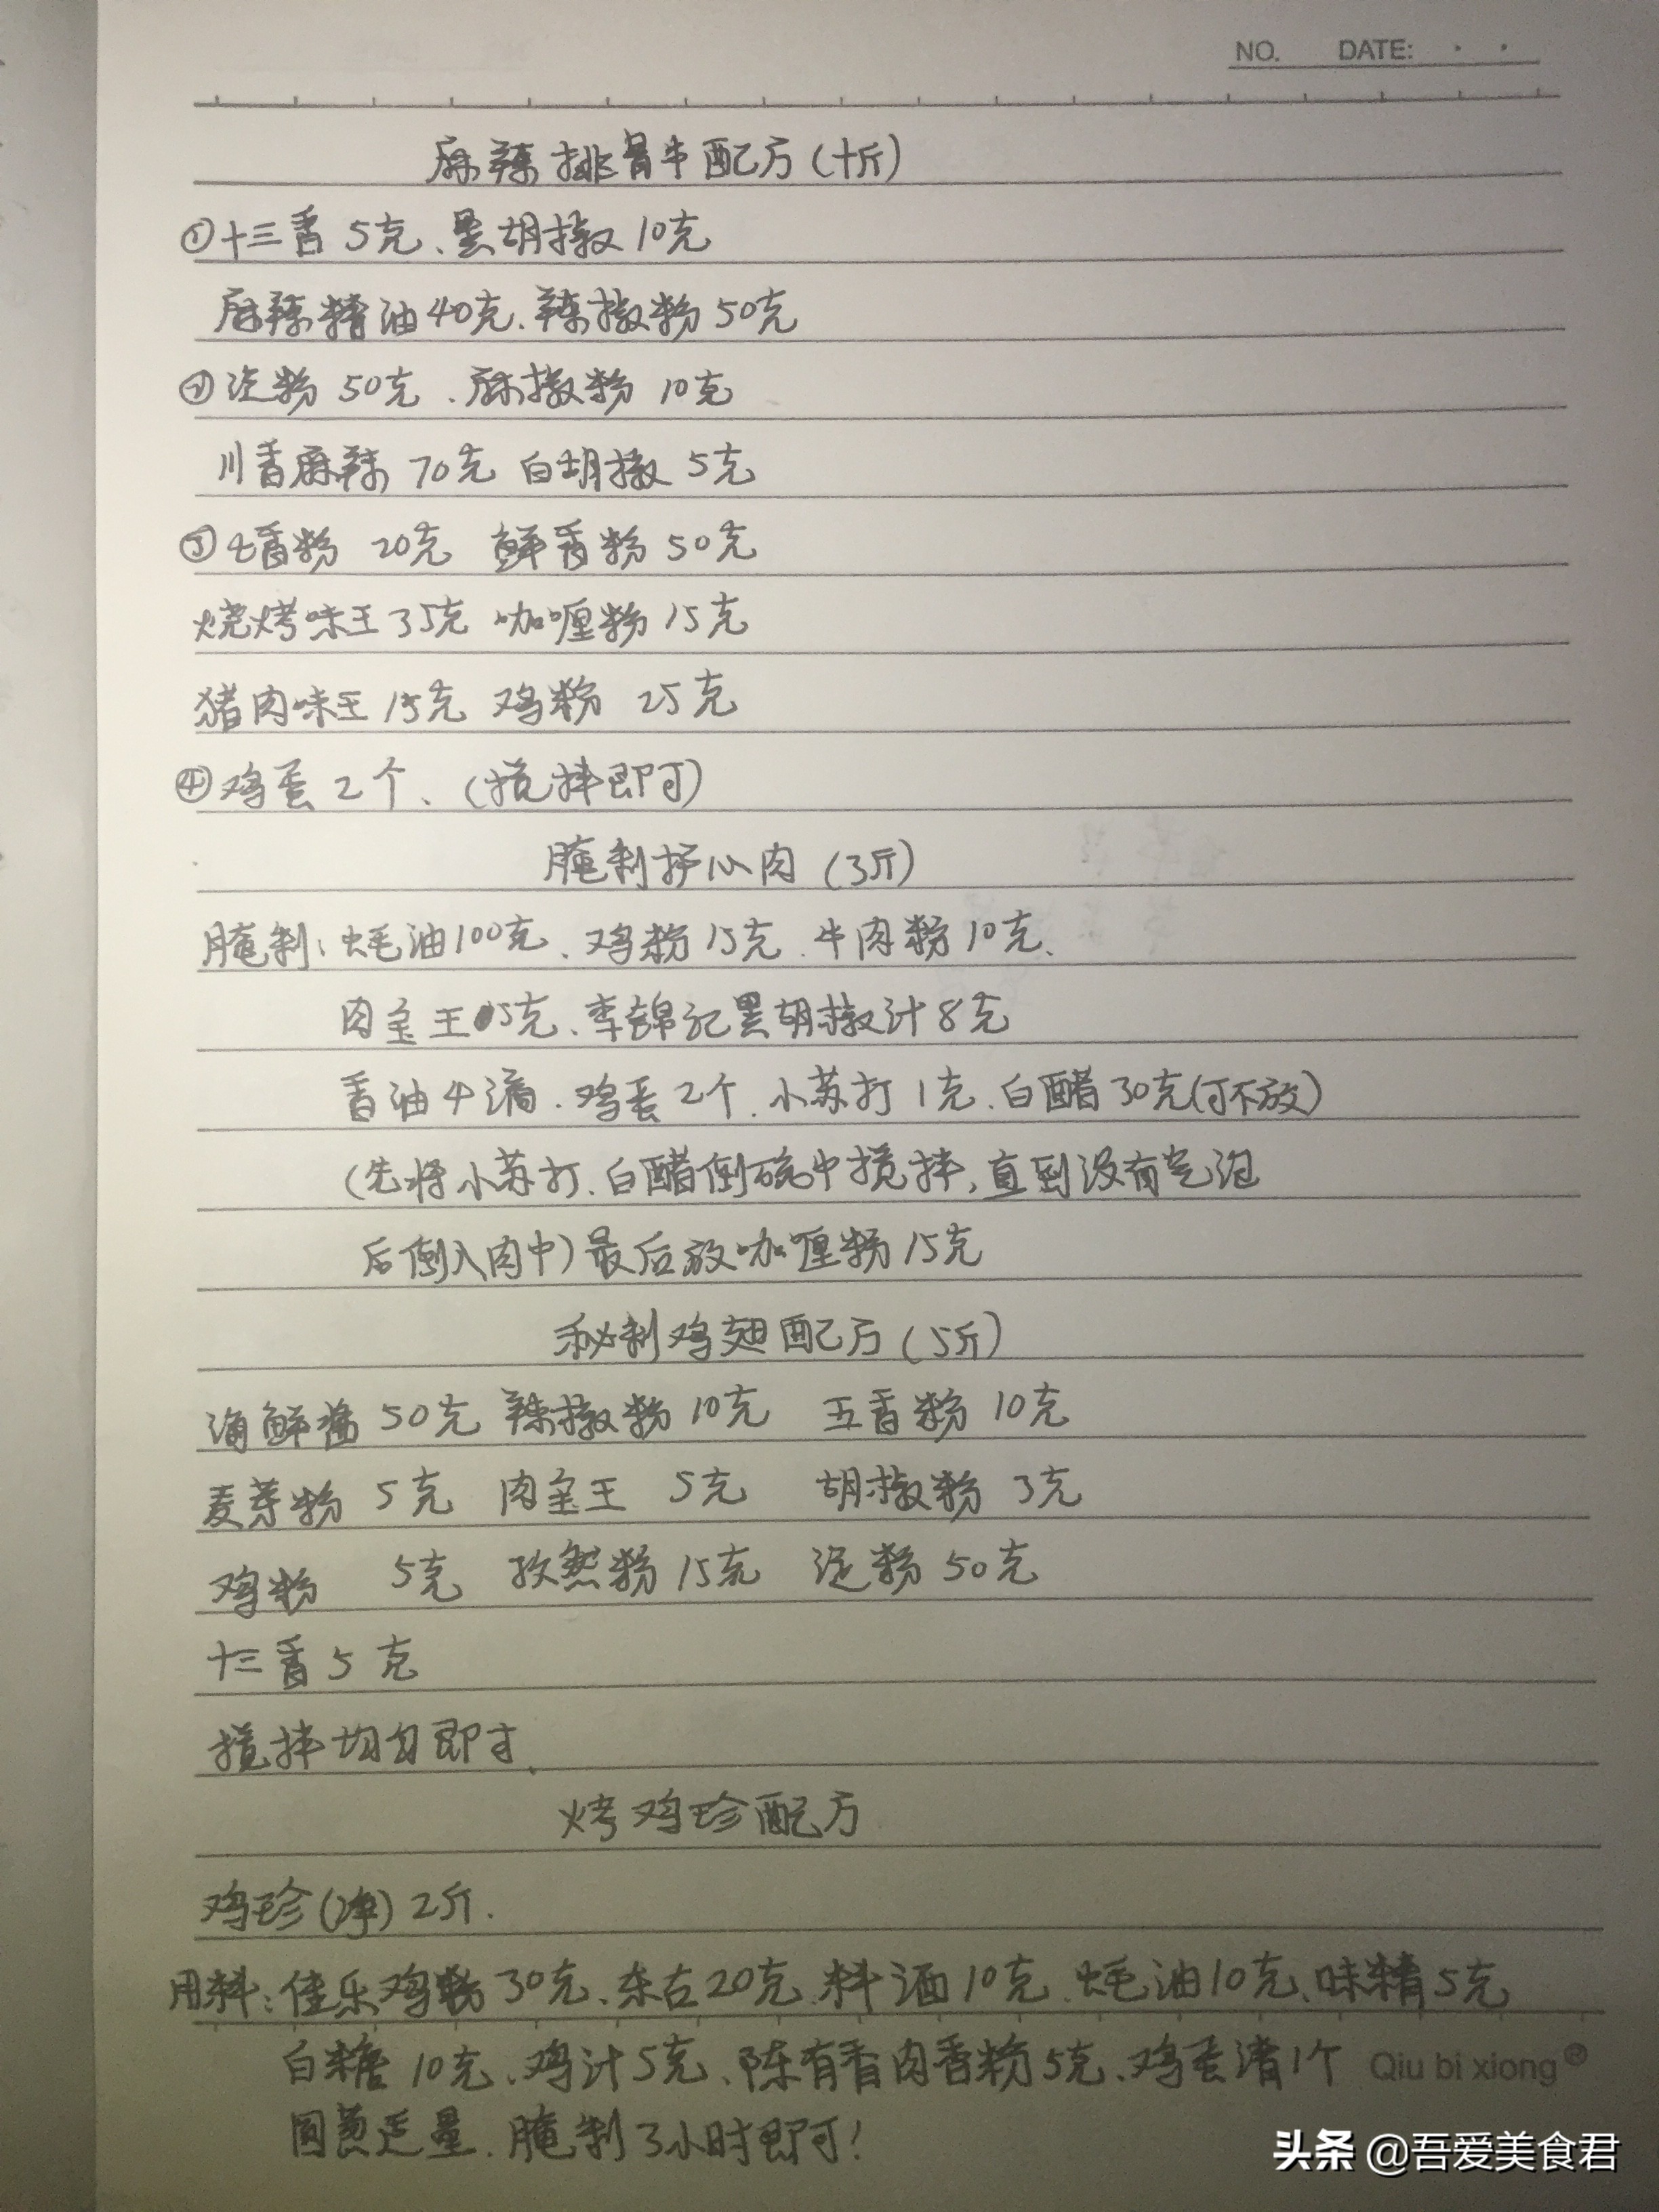 NO. DATE:
麻辣排骨牛配方(十斤)
①十三香 5克、黑胡椒10克
麻辣精油40克、辣椒粉50克
②淀粉 50克、麻椒粉 10克
川香麻辣 70克 白胡椒 5克
③七香粉 20克 鲜香粉 50克
烧烤味王35克 咖喱粉 15克
猪肉味王15克 鸡粉 25克
④鸡蛋2个、(搅拌即可)
腌制护心肉(3斤)
腌制:蚝油100克、鸡粉15克、牛肉粉10克、
肉宝王5克、李锦记黑胡椒汁8克
香油4滴、鸡蛋2个、小苏打1克、白醋30克(可不放)
(先将小苏打、白醋倒碗中搅拌,直到没有气泡
后倒入肉中)最后放咖喱粉15克
秘制鸡翅配方(5斤)
海鲜酱 50克 辣椒粉10克 五香粉 10克
麦芽粉 5克 肉宝王 5克 胡椒粉 3克
鸡粉 5克 孜然粉15克 淀粉50克
十三香5克
搅拌均匀即可、
烤鸡珍配方
鸡珍(净)2斤.
用料:佳乐鸡粉30克、东古20克、料酒10克、蚝油10克、味精5克
白糖10克、鸡汁5克、陈有香肉香粉5克、鸡蛋清1个 Qiu bi xiong®
圆葱适量、腌制3小时即可!
头条 @吾爱美食君